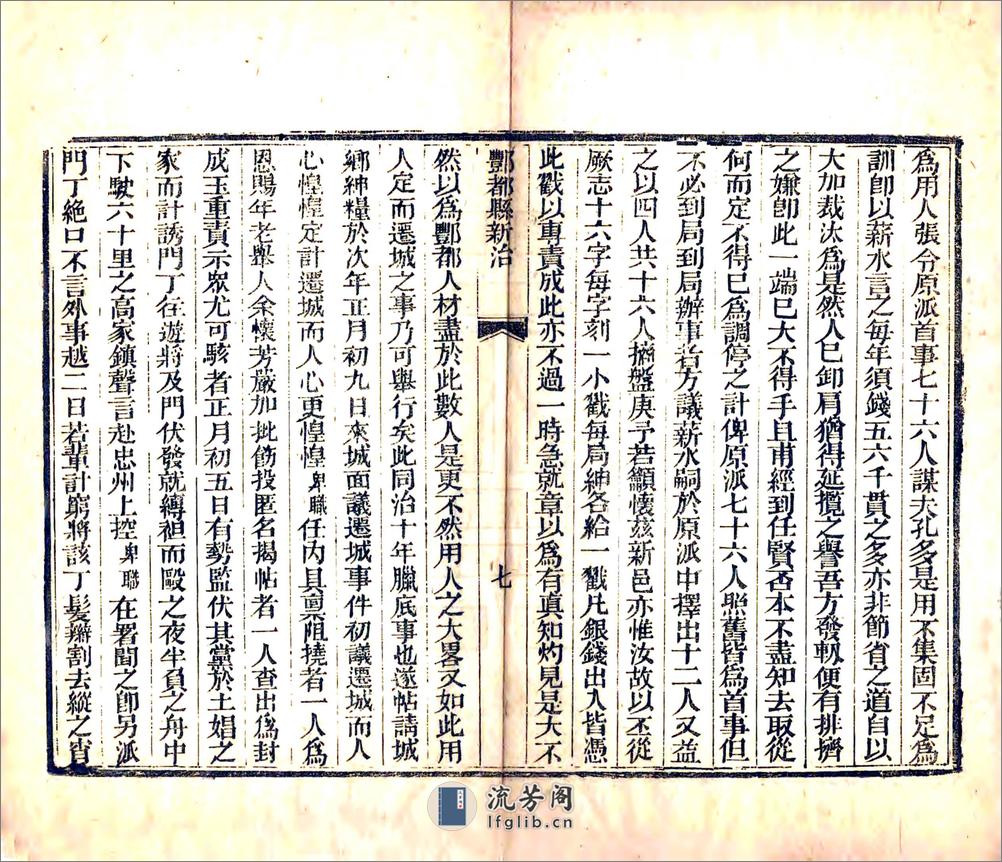 為用人張令原派首事七十六人謀夫孔多是用不集固不足為
訓卽以薪水言之每年須錢五六千貫之多亦非節省之道自以
大加裁汰為是然人已卸肩猶得延攬之譽吾方發軔便有排擠
之嫌卽此一端已大不得手且甫經到任賢否本不盡知去取從
何而定不得已為調停之計俾原派七十六人照舊皆為首事但
不必到局到局辦事者方議薪水嗣於原派中擇出十二人又益
之以四人共十六人摘盤庚予若籲懷茲新邑亦惟汝故以丕從
厥志十六字每字刻一小戳每局紳各給一戳凡銀錢出入皆憑
此戳以專責成此亦不過一時急就章以為有眞知灼見是大不
酆都縣新治
七
然以為酆都人材盡於此數人是更不然用人之大畧又如此用
人定而遷城之事乃可舉行矣此同治十年臘底事也遂帖請城
鄉紳糧於次年正月初九日來城面議遷城事件初議遷城而人
心惶惶定計遷城而人心更惶惶卑職任內具稟阻撓者一人為
恩賜年老舉人余懷芳嚴加批飭投匿名揭帖者一人查出為封
成玉重責示眾尤可駭者正月初五日有勢監伏其黨於土娼之
家而計誘門丁往遊將及門伏發就縛袒而毆之夜半負之舟中
下駛六十里之高家鎮聲言赴忠州上控卑聯在署聞之卽另派
門丁絕口不言外事越二日若輩計窮將該丁髮辮割去縱之宵
流芳阁
lfglib.cn